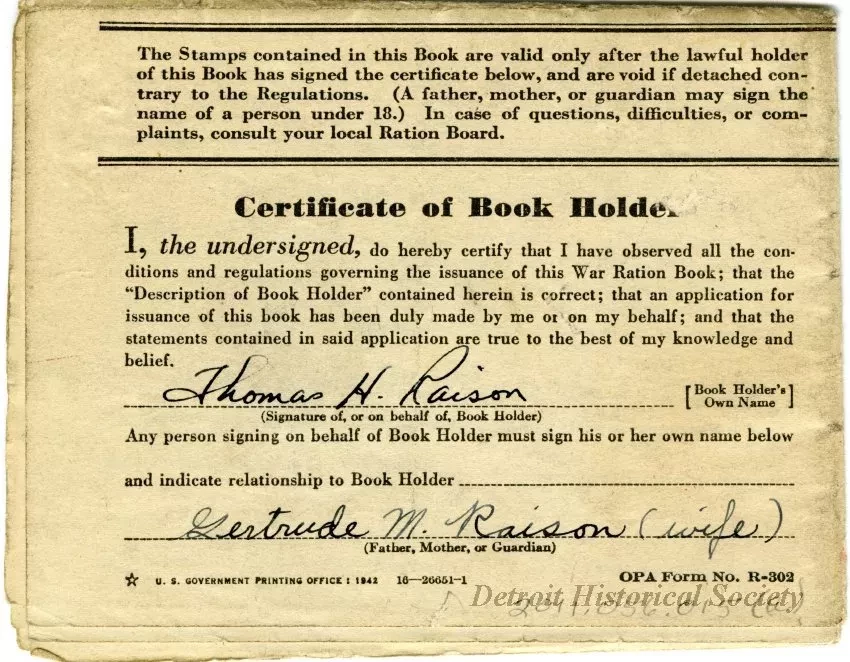 The Stamps contained in this Book are valid only after the lawful holder
of this Book has signed the certificate below, and are void if detached con-
trary to the Regulations. (A father, mother, or guardian may sign the
name of a person under 18.) In case of questions, difficulties, or com-
plaints, consult your local Ration Board.
Certificate of Book Holder
I, the undersigned, do hereby certify that I have observed all the con-
ditions and regulations governing the issuance of this War Ration Book; that the
“Description of Book Holder” contained herein is correct; that an application for
issuance of this book has been duly made by me or on my behalf; and that the
statements contained in said application are true to the best of my knowledge and
belief.
Thomas H. Raison [Book Holder's
Own Name]
(Signature of, or on behalf of, Book Holder)
Any person signing on behalf of Book Holder must sign his or her own name below
and indicate relationship to Book Holder
Gertrude M. Raison (wife)
(Father, Mother, or Guardian)
☆ U. S. GOVERNMENT PRINTING OFFICE : 1942 16—26651-1 OPA Form No. R-302
Detroit Historical Society